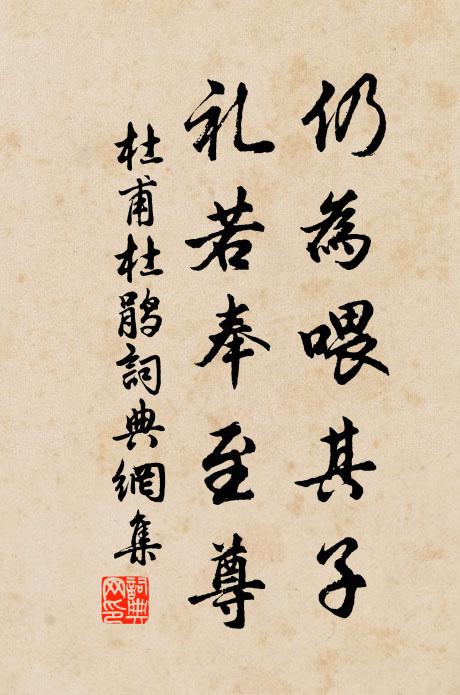 仍為喂其子
礼若奉至尊
杜甫杜鹃詞典網集
詞典网印